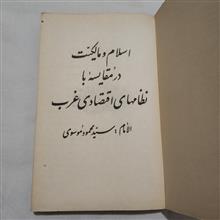 اسلام و مالکیت
در مقایسه با
نظامهای اقتصادی غرب
الامام: سید محمود موسوی